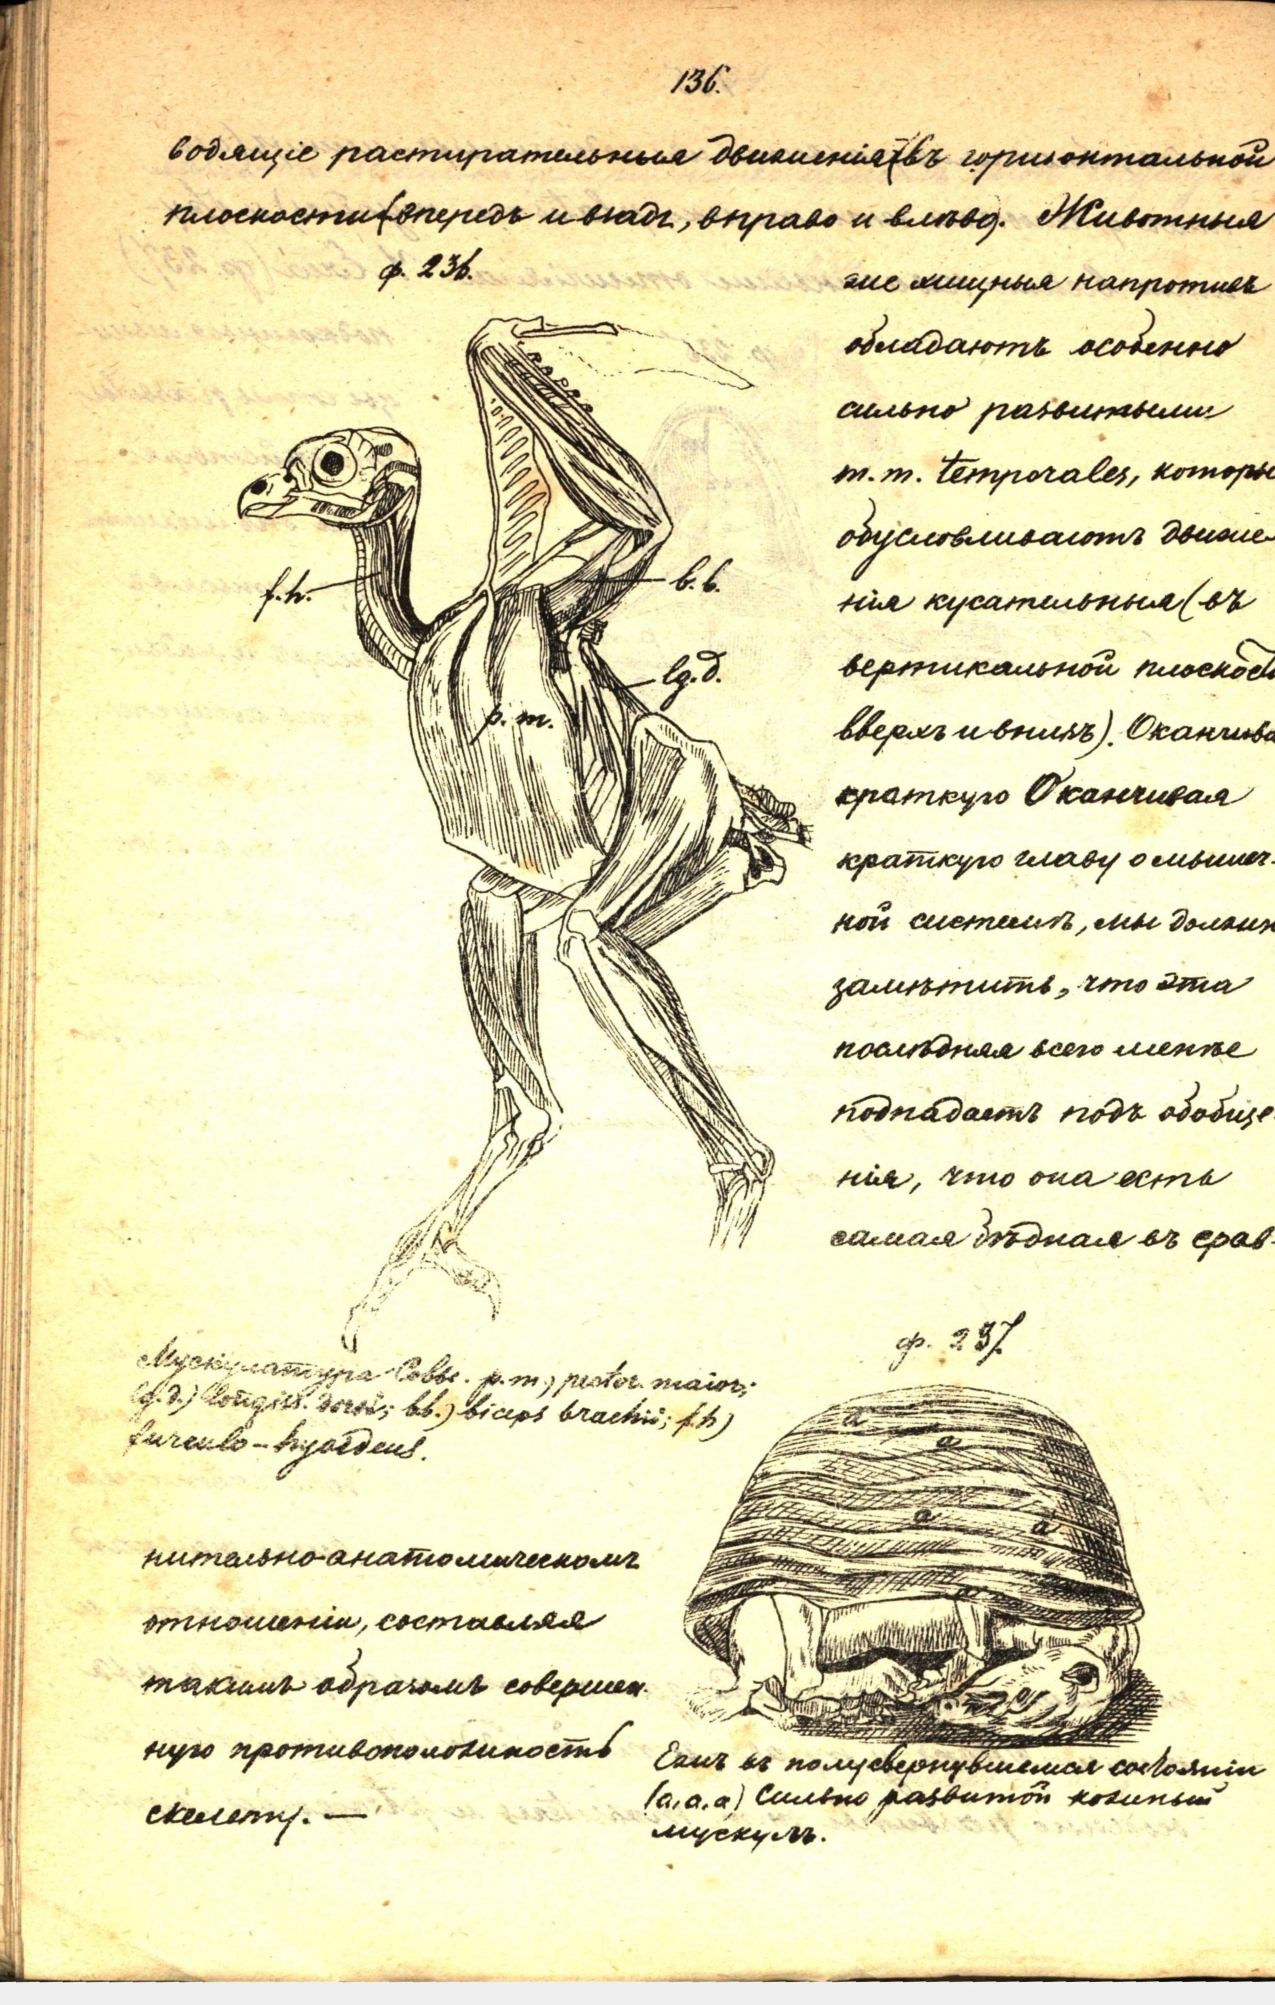 136.
водящіе растирательныя движенія (въ горизонтальной
плоскости (впередъ и взадъ, вправо и влѣво). Животныя
ф. 236.
же хищныя напротивъ
обладаютъ особенно
сильно развитыми
m. m. temporales, которы
обусловливаютъ движе-
нія кусательныя (въ
вертикальной плоскости
вверхъ и внизъ). Оканчива
краткую Оканчивая
краткую главу о мышеч-
ной системѣ, мы должн
замѣтить, что эта
послѣдняя всего менѣе
подпадаетъ подъ обобще
нія, что она есть
самая бѣдная въ срав-
f. h.
b. b.
lg. d.
p. m.
Мускулатура p. m.) pector. maior;
lg. d.) longis. dorsi; bb.) biceps brachii; f. h)
furculo-hyoideus.
ф. 237.
a
a
a
a
a
нительно-анатомическомъ
отношеніи, составляя
такимъ образомъ совершен-
ную противоположность
скелету. —
Ежъ въ полусвернувшемся состояніи
(a, a, a) Сильно развитой кожный
мускулъ.